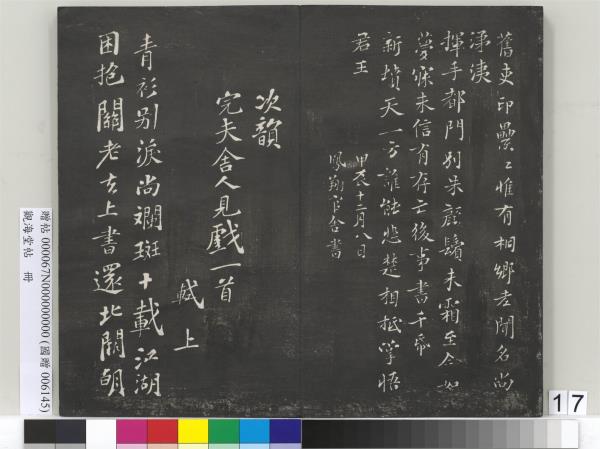 舊吏印纍〻惟有桐鄉老聞名尚
涕洟
揮手都門別朱顏鬢未霜至今如
夢寐未信有存亡後事書千帋
新墳天一方誰能悲楚相抵掌悟
君王
甲辰十二月八日
鳳翔官舍書
次韻
完夫舍人見戲一首
軾上
青衫別淚尚斕斑十載江湖
困抱關老去上書還北闕朝
贈帖 000067N000000000 (國贈 006145)
觀海堂帖 冊
17